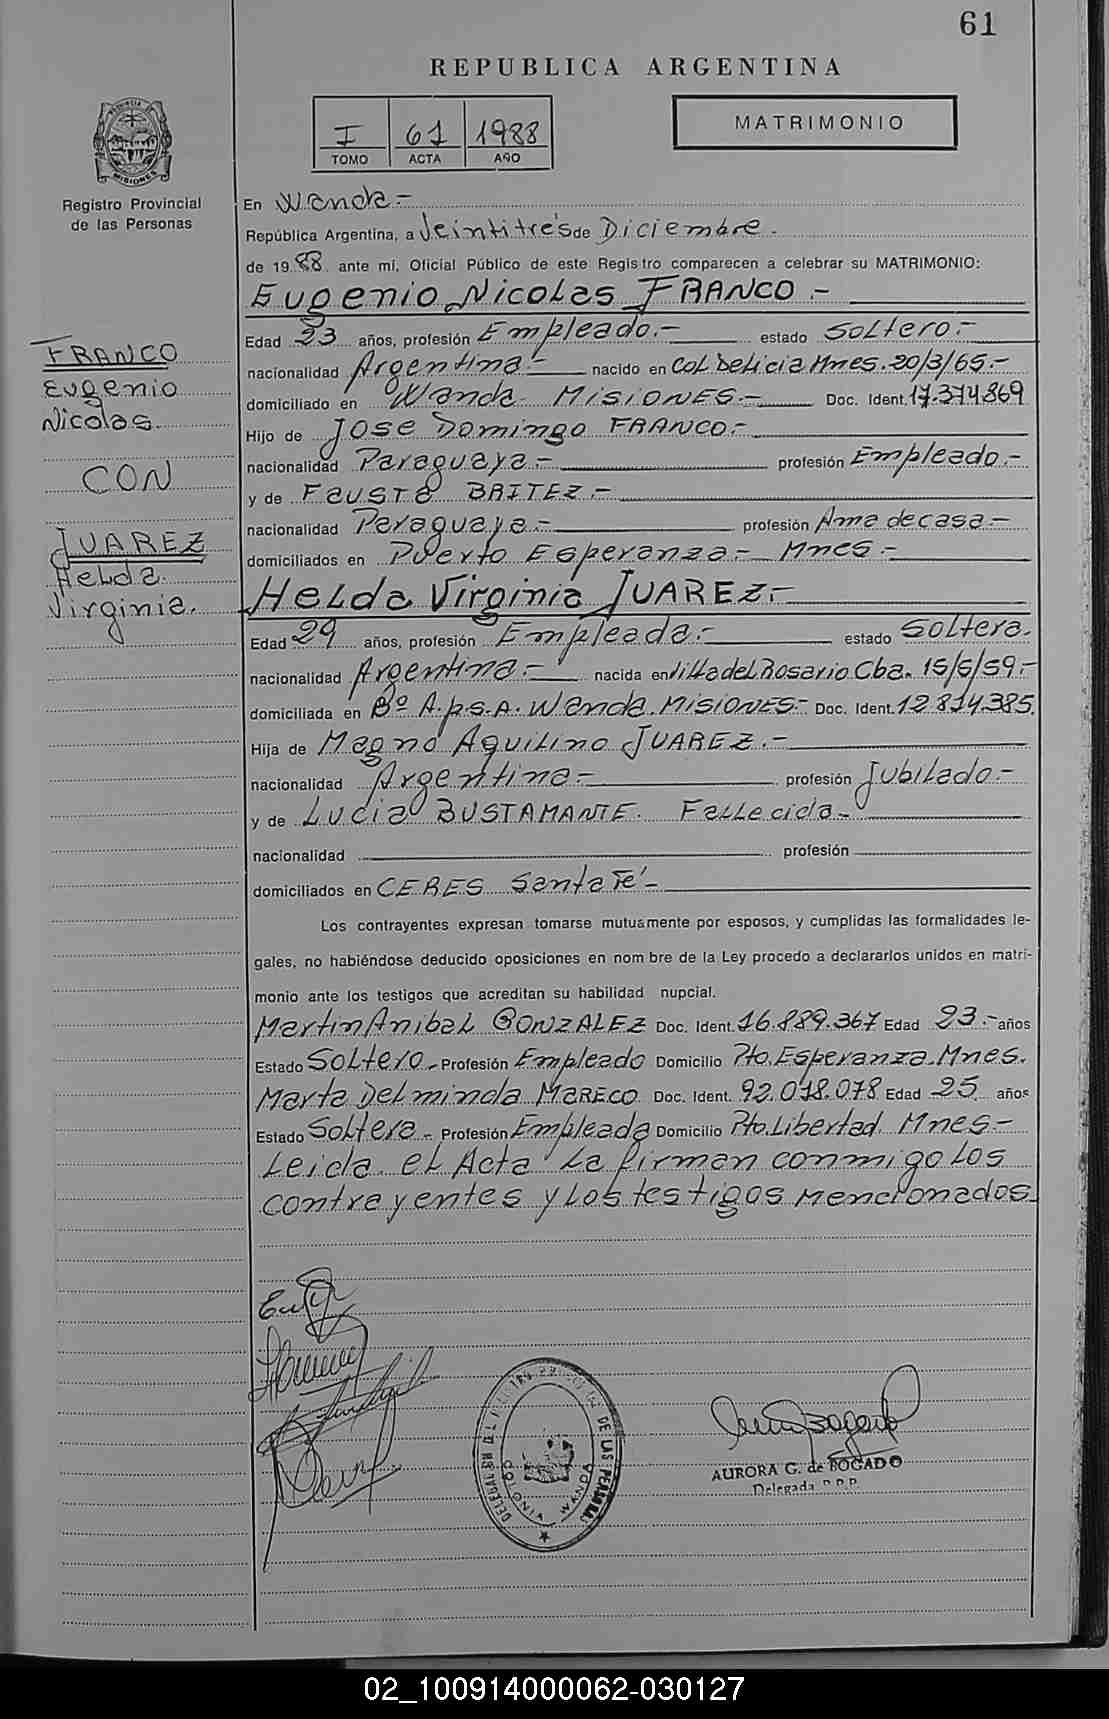 61
REPUBLICA ARGENTINA
I 61 1988
TOMO ACTA AÑO
MATRIMONIO
PROVINCIA DE
MISIONES
Registro Provincial
de las Personas
En Wanda.-
República Argentina, a Veintitrés de Diciembre.
de 1988 ante mí, Oficial Público de este Registro comparecen a celebrar su MATRIMONIO:
Eugenio Nicolas FRANCO.-
Edad 23 años, profesión Empleado.- estado Soltero.-
nacionalidad Argentina.- nacido en Col. Delicia Mnes. 20/3/65.-
domiciliado en Wanda- MISIONES.- Doc. Ident. 17.374.869
Hijo de JOSE Domingo FRANCO.-
nacionalidad Paraguaya.- profesión Empleado.-
y de Fausta BRITEZ.-
nacionalidad Paraguaya.- profesión Ama de casa.-
domiciliados en Puerto Esperanza.- Mnes.-
Helda Virginia JUAREZ.-
Edad 29 años, profesión Empleada.- estado Soltera.
nacionalidad Argentina.- nacida en Villa del Rosario Cba. 15/5/59.-
domiciliada en Bº A.p.s.A. Wanda. MISIONES.- Doc. Ident. 12.814.385.
Hija de Magno Aquilino JUAREZ.-
nacionalidad Argentina.- profesión Jubilado.-
y de Lucia BUSTAMANTE. Fallecida.-
nacionalidad profesión
domiciliados en CERES Santa Fé-
Los contrayentes expresan tomarse mutuamente por esposos, y cumplidas las formalidades le-
gales, no habiéndose deducido oposiciones en nom bre de la Ley procedo a declararlos unidos en matri-
monio ante los testigos que acreditan su habilidad nupcial.
Martin Anibal GONZALEZ Doc. Ident. 16.889.367 Edad 23.- años
Estado Soltero.- Profesión Empleado Domicilio Pto. Esperanza. Mnes.
Marta Delminda MARECO Doc. Ident. 92.018.078 Edad 25. años
Estado Soltera.- Profesión Empleada Domicilio Pto. Libertad. Mnes.-
Leida el Acta la firman conmigo los
contrayentes y los testigos mencionados.
FRANCO
Eugenio
Nicolas.
CON
JUAREZ
Helda
Virginia.
DE LAS PERSONAS
COLONIA WANDA
AURORA G. de BOGADO
Delegada
02_100914000062-030127